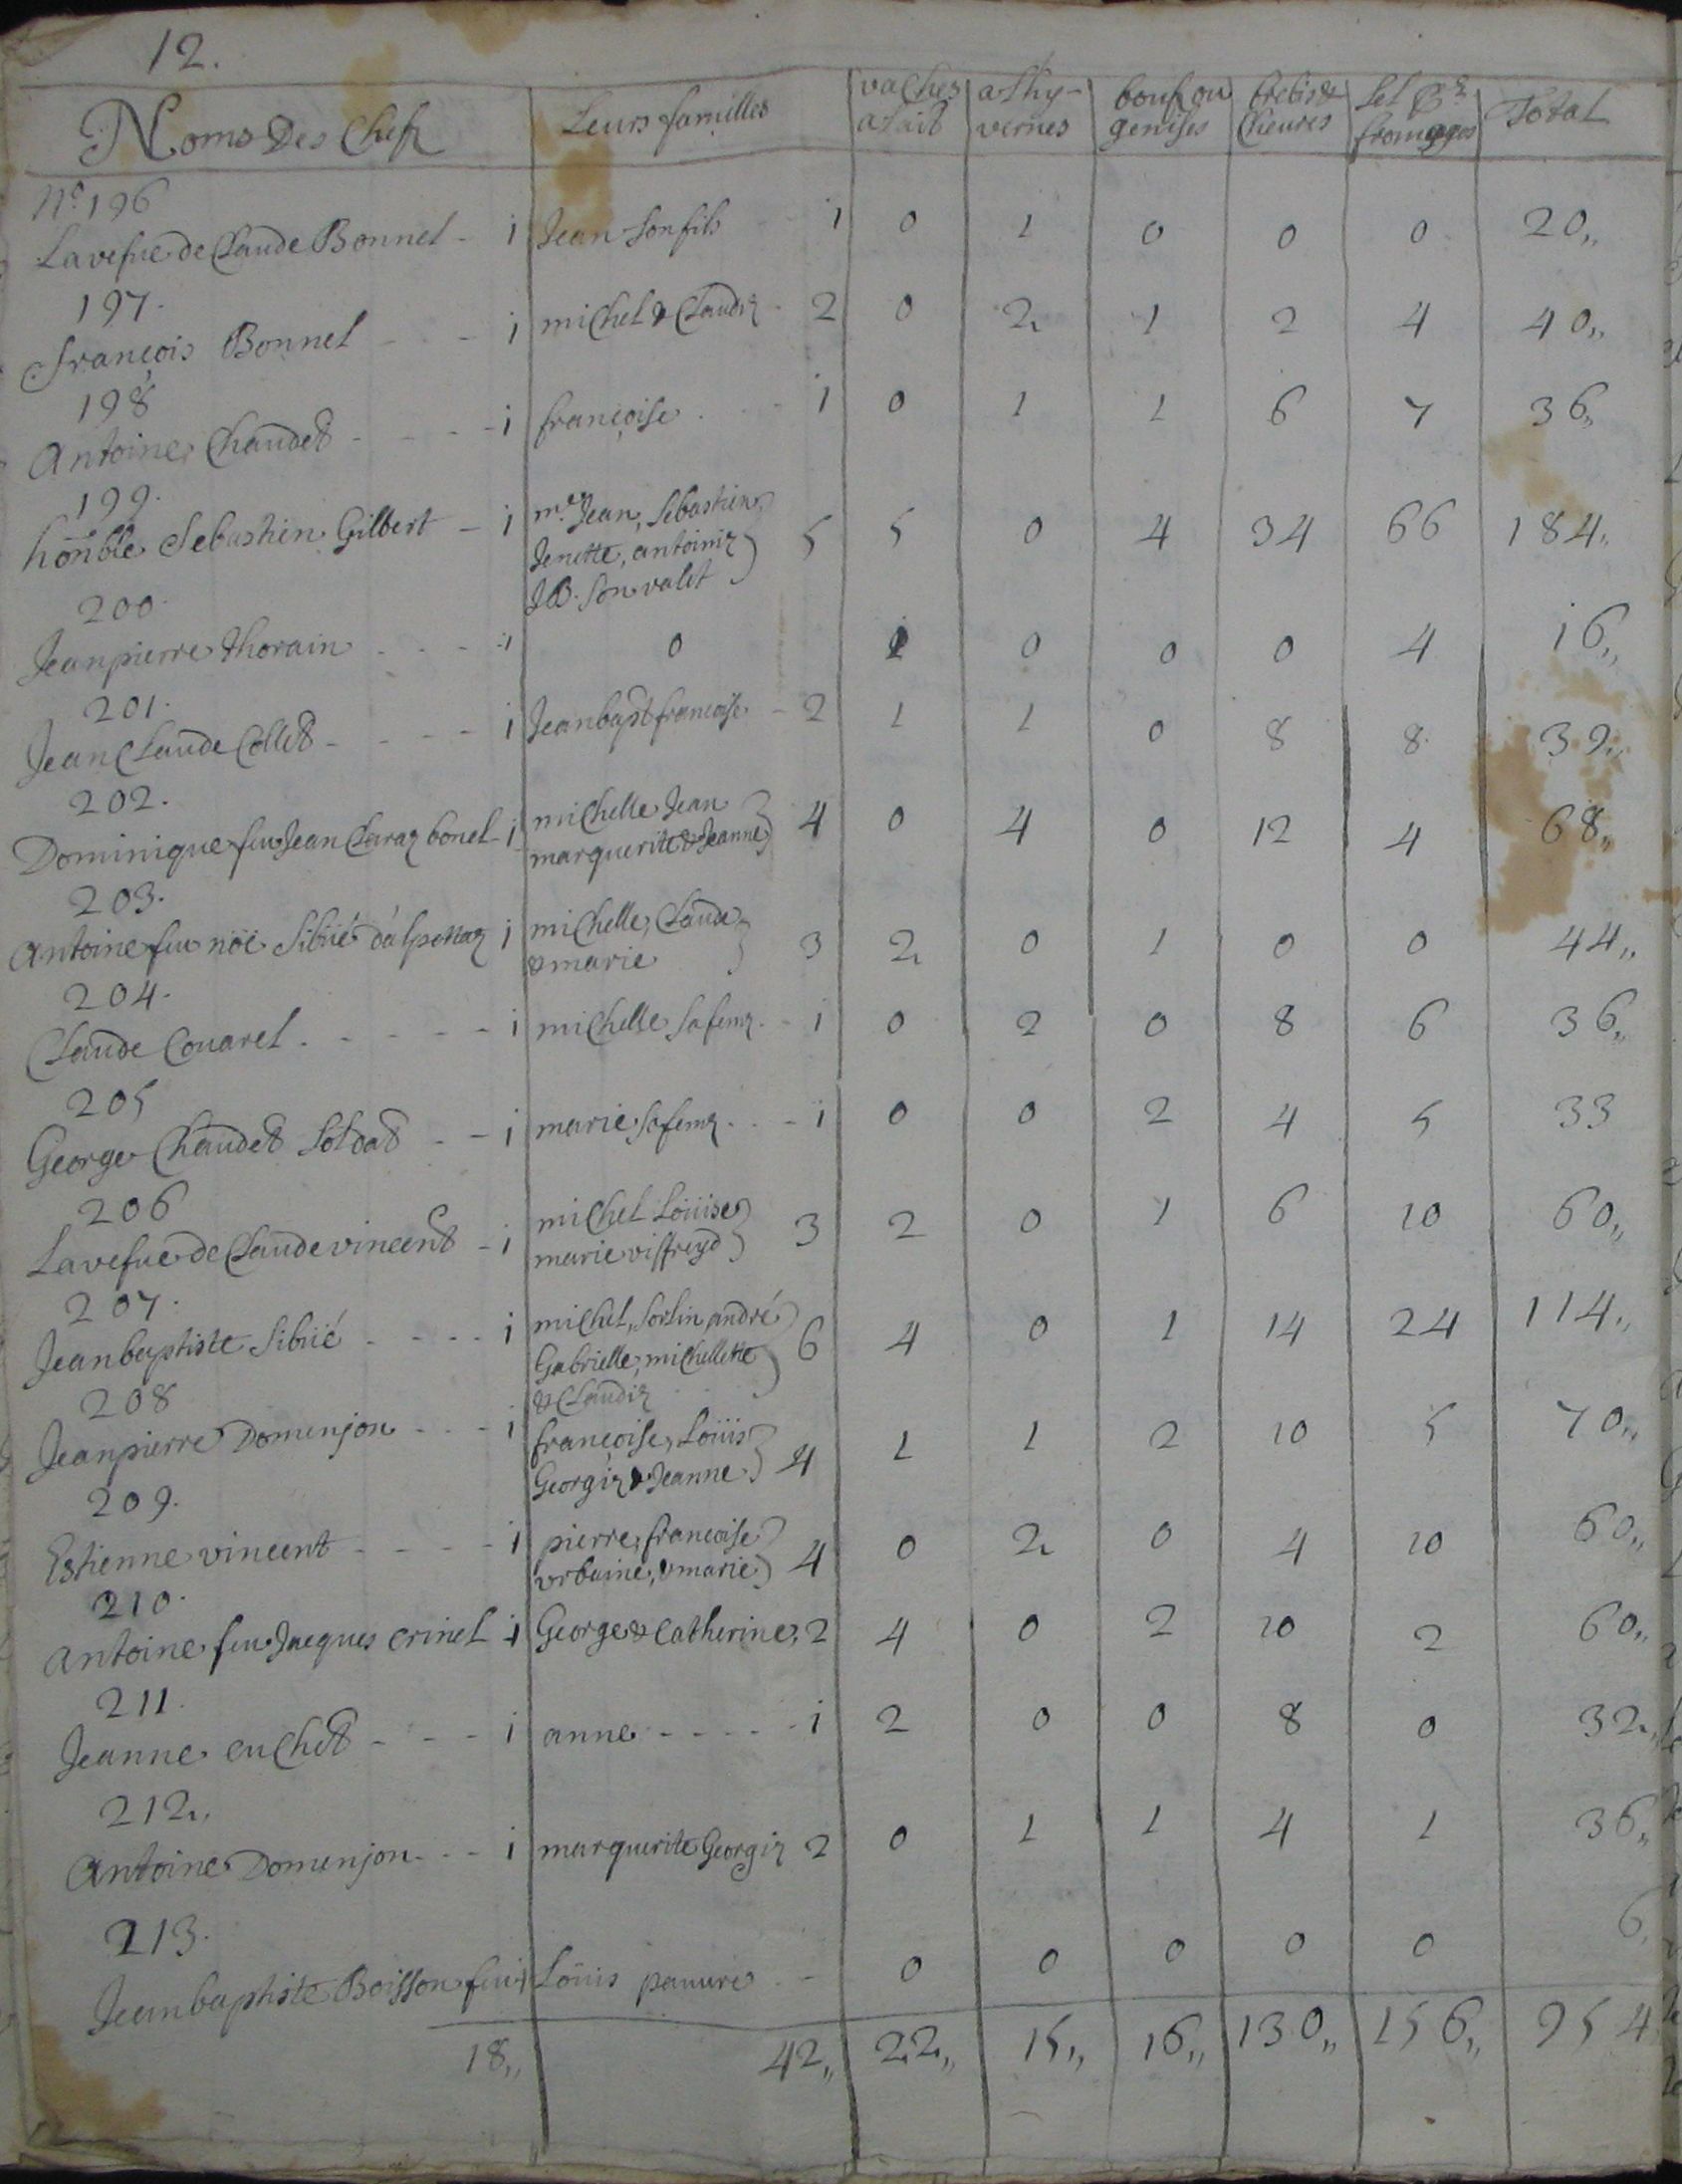 12.
Noms Des Chefz | Leurs familles | vaches a lait | a Lhy-vernes | boeuf ou genises | brebis & Cheures | Sel & fromages | Total
No 196
La vefue de Claude Bonnel - i | Jean Son fils - i | 0 | 1 | 0 | 0 | 0 | 20,,
197.
françois Bonnel - - - i | michel & Claudaz - 2 | 0 | 2 | 1 | 2 | 4 | 40,,
198
Antoine Chaudet - - - - i | françoise - - - i | 0 | 1 | 1 | 6 | 7 | 36,,
199.
honble Sebastien Gilbert - i | me Jean, Sebastien,
Jenette, antoiniz } 5 | 5 | 0 | 4 | 34 | 66 | 184,,
JB. Son valet
200.
Jean pierre thorain - - - - i | 0 | 1 | 0 | 0 | 0 | 4 | 16,,
201.
Jean Claude Collet - - - - i | Jean bapst francoise - 2 | 1 | 1 | 0 | 8 | 8 | 39,,
202.
Dominique feu Jean Claraz bonel - i | michelle Jean
marguerite & Jeanne } 4 | 0 | 4 | 0 | 12 | 4 | 68,,
203.
Antoine feu noë Sibüé d'alpettaz i | michelle, Claude
& marie } 3 | 2 | 0 | 1 | 0 | 0 | 44,,
204.
Claude Couarel - - - - - i | michelle Sa femz - - i | 0 | 2 | 0 | 8 | 6 | 36,,
205
George Chaudet Soldat - - i | marie Sa femz - - - i | 0 | 0 | 2 | 4 | 5 | 33
206
La vefue de Claude vincent - i | michel Loüise
marie viffreyd } 3 | 2 | 0 | 1 | 6 | 10 | 60,,
207.
Jean baptiste Sibüé - - - - i | michel, Sorlin, andré
Gabrielle, michellette } 6 | 4 | 0 | 1 | 14 | 24 | 114,,
& Claudiz
208
Jean pierre Domenjon - - - i | françoise, Loüis
Georgiz & Jeanne } 4 | 1 | 1 | 2 | 10 | 5 | 70,,
209.
Estienne vincent - - - - i | pierre, francoise
vrbaine, & marie } 4 | 0 | 2 | 0 | 4 | 10 | 60,,
210.
Antoine feu Jacques crinel i | George & Catherine, 2 | 4 | 0 | 2 | 10 | 2 | 60,,
211.
Jeanne cuchet - - - i | anne - - - - - i | 2 | 0 | 0 | 8 | 0 | 32,,
212,,
Antoine Domenjon - - - i | marguerite Georgiz 2 | 0 | 1 | 1 | 4 | 1 | 36,,
213.
Jean baptiste Boisson feu i | Loüis pauure - - | 0 | 0 | 0 | 0 | 0 | 6,
18,, | 42,, | 22,, | 15,, | 16,, | 130,, | 156,, | 954